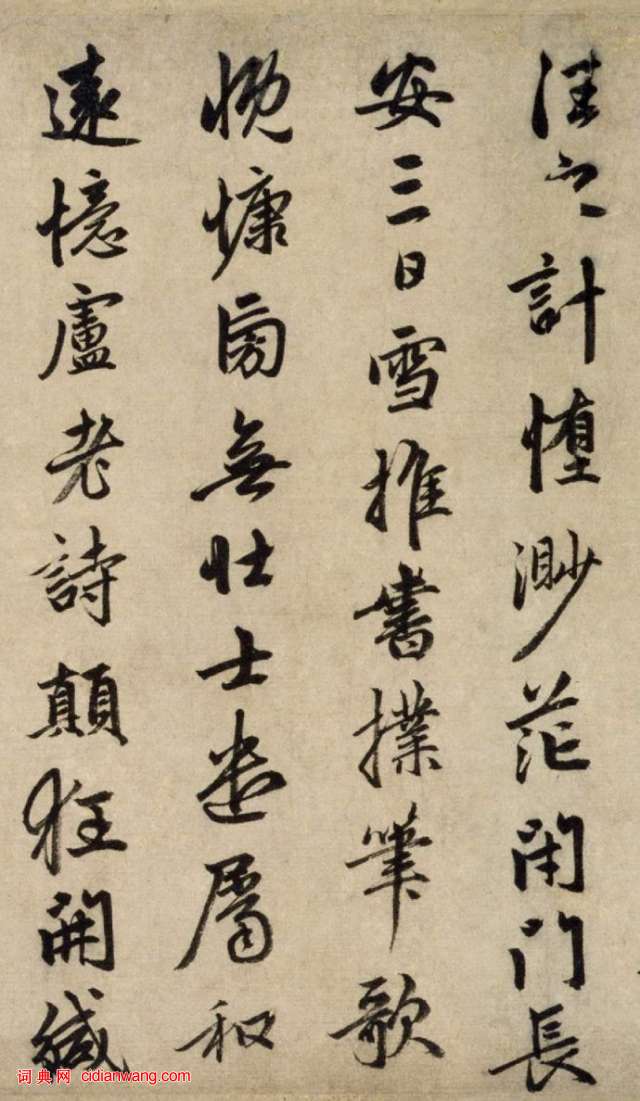 之計墮渺茫閉門長
安三日雪推書撲筆歌
慨慷旁無壯士遣屬和
遠憶盧老詩顛狂開緘
词典网 cidianwang.com